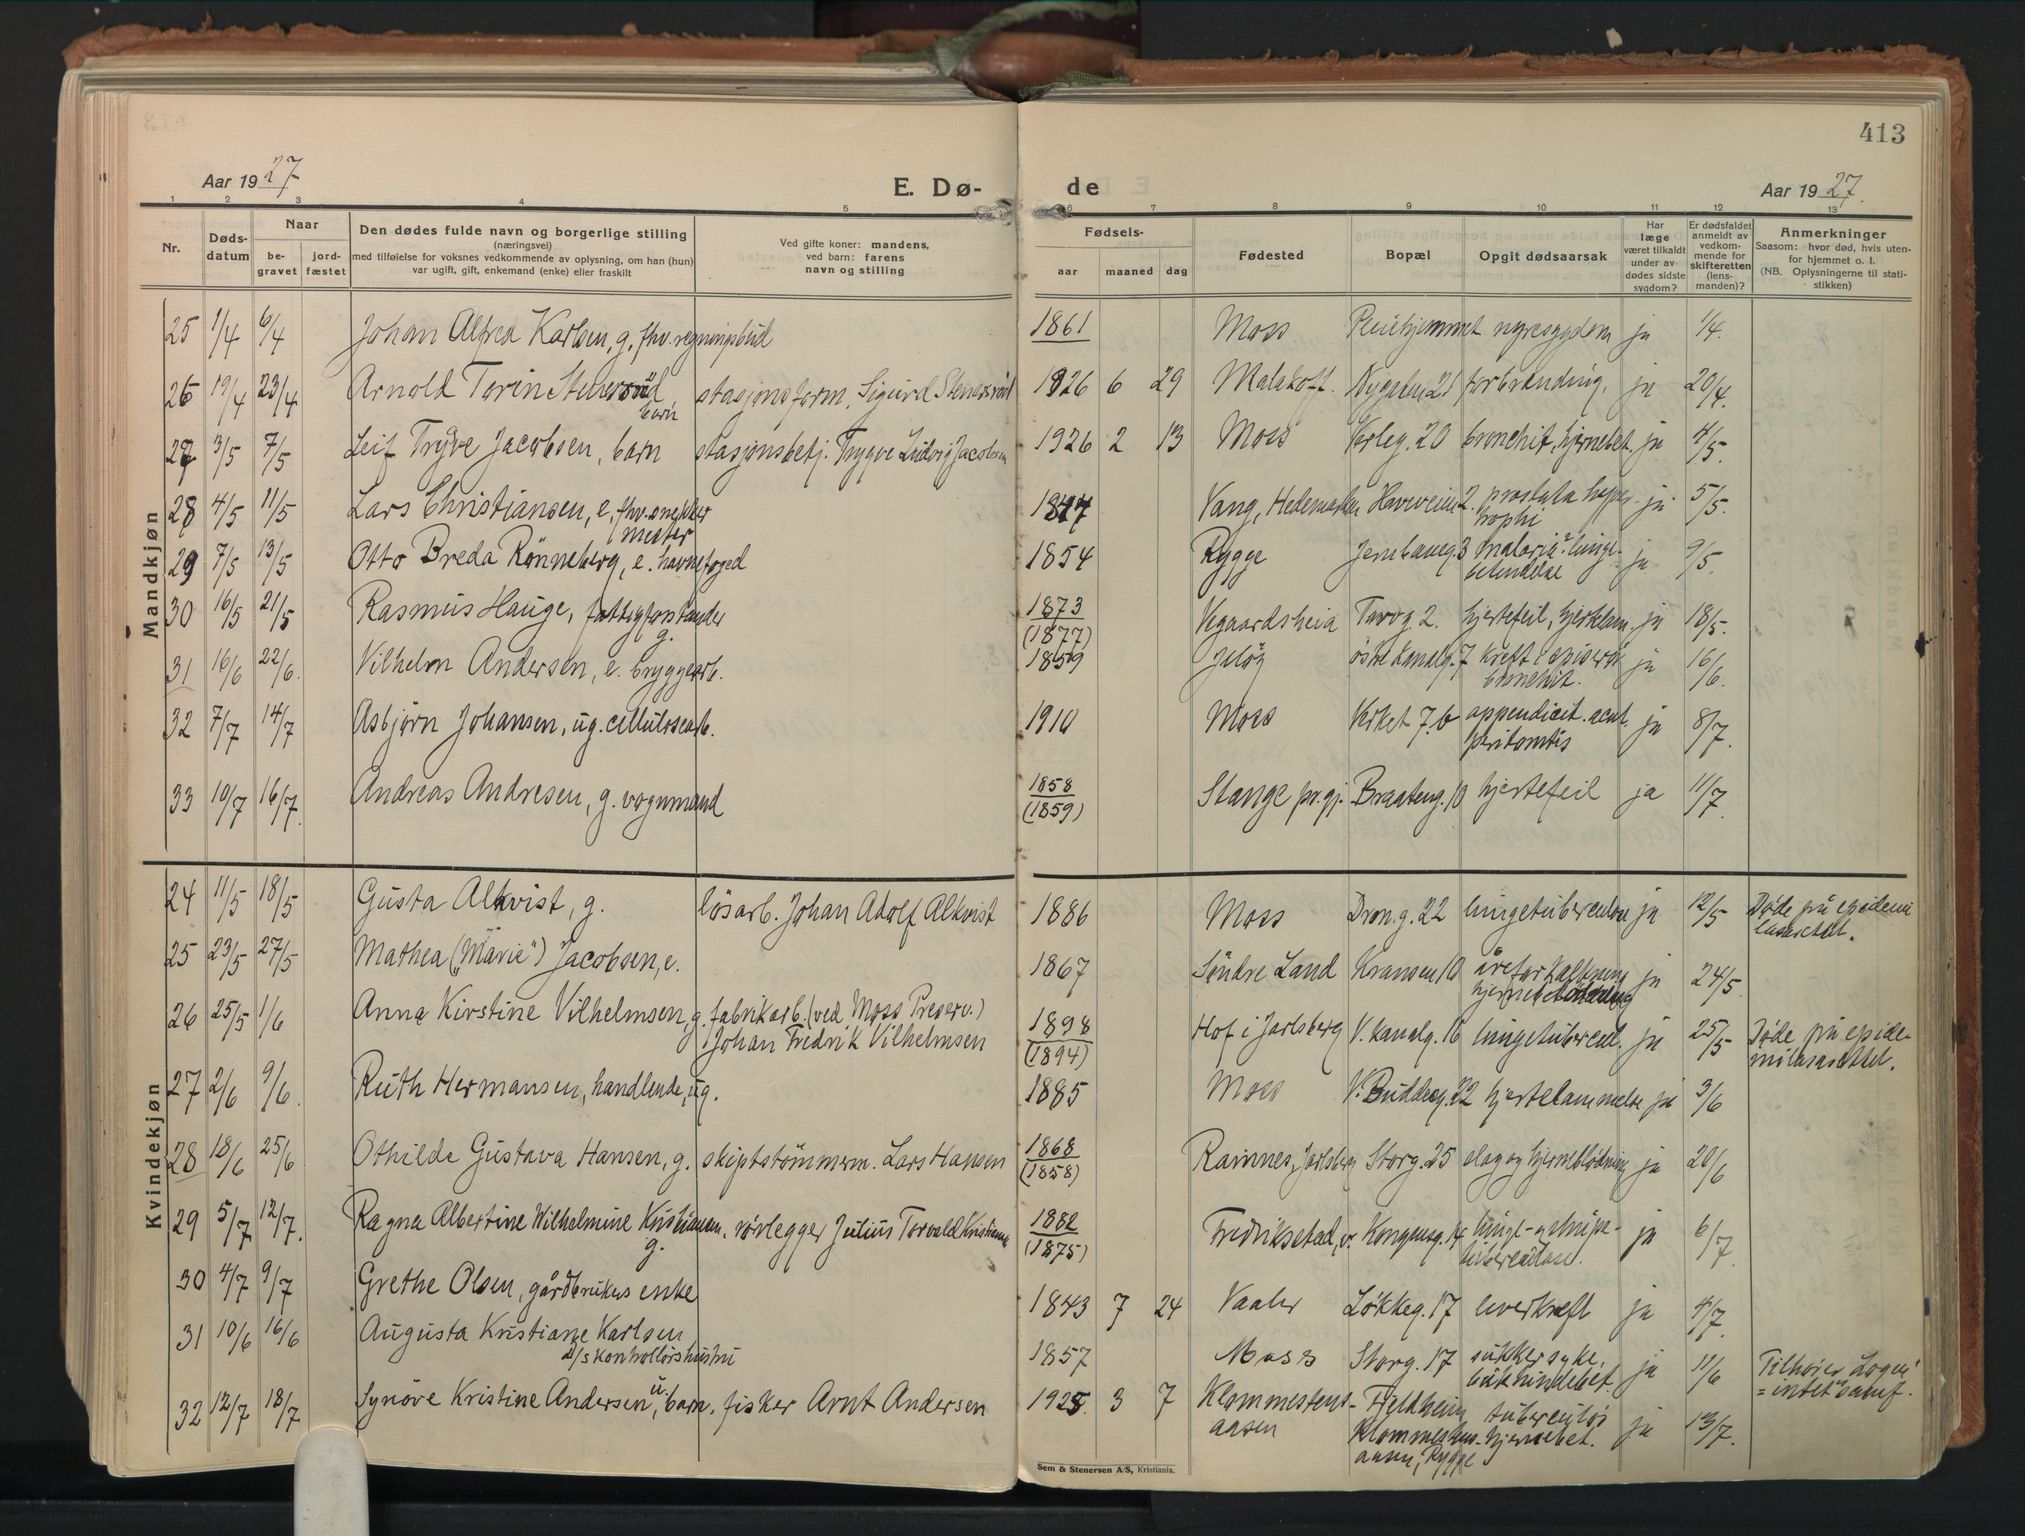 413
Aar 1927
E. Dø-
de
Aar 1927.
1 2 3 4 5 6 7 8 9 10 11 12 13
Nr.
Døds-
datum
Naar
be-
gravet
jord-
fæstet
Den dødes fulde navn og borgerlige stilling
(næringsvei)
med tilføielse for voksnes vedkommende av oplysning, om han (hun)
var ugift, gift, enkemand (enke) eller fraskilt
Ved gifte koner: mandens,
ved barn: farens
navn og stilling
Fødsels-
aar maaned dag
Fødested
Bopæl
Opgit dødsaarsak
Har
læge
været tilkaldt
under av-
dødes sidste
sygdom?
Er dødsfaldet
anmeldt av
vedkom-
mende for
skifteretten
(lens-
manden)?
Anmerkninger
Saasom: hvor død, hvis uten-
for hjemmet o. l.
(NB. Oplysningerne til stati-
stikken)
Mandkjøn
25 1/4 6/4 Johan Alfred Karlsen, g. fhv. regningsbud 1861 Moss Pleiehjemmet nyresygdom ja 1/4.
26 19/4 23/4 Arnold Torin Stensrud, stasjonsform. Sigurd Stensrud 1926 6 29 Malakoff. 21 forbrænding, ja 20/4.
barn
27 3/5 7/5 Leif Trygve Jacobsen, barn stasjonsbetj. Trygve Ludvig Jacobsen 1926 2 13 Moss Verleg. 20 bronchit, hjernebet. ja 4/5.
28 4/5 11/5 Lars Christiansen, e, fhv. snekker 1847 Vang, Hedemarken 2. prostata hyper- ja 5/5.
mester trophi
29 7/5 13/5 Otto Breda Rönneberg, e. havnefoged 1854 Rygge Jernbaneg. 3 malaria. lunge- ja 9/5.
betendelse
30 16/5 21/5 Rasmus Hauge, fattigforstander 1873 Vegaardsheia Torvg 2. hjertefeil, hjertelam. ja 18/5.
g. (1877)
31 16/6 22/6. Vilhelm Andersen, e. bryggearb. 1859 Jeløy östre Kanalg. 7 kreft i spiserör ja 16/6.
bronchit.
32 7/7 14/7 Asbjørn Johansen, ug. cellulosearb. 1910 Moss Verket 7.b appendicit. acut. ja 8/7.
peritonitis
33 10/7 16/7. Andreas Andresen, g. vognmand 1858 Stange pr.gj. Braateng. 10 hjertefeil ja 11/7.
(1859)
Kvindekjøn
24 11/5 18/5 Gusta Alkvist, g. løsarb. Johan Adolf Alkvist 1886 Moss Dron.g. 22 lungetuberculose ja 12/5 Døde på epidemi
lasarettet.
25 23/5 27/5 Mathea ("Marie") Jacobsen, e. 1867 Søndre Land Kransen 10 åreforkalkning ja 24/5.
26 25/5 1/6 Anna Kirstine Vilhelmsen, g. fabrikarb. (ved Moss Preserv.) 1898 Hof i Jarlsberg V. Kanalg. 16 lungetubercul. ja 25/5 Døde på epide-
Johan Fredrik Vilhelmsen (1894) milasarettet.
27 2/6 9/6. Ruth Hermansen, handlende, ug. 1885 Moss 22 hjertelammelse ja 3/6
28 18/6 25/6 Othilde Gustava Hansen, g. skipstömmerm. Lars Hansen 1868 Ramnes, Jarlsberg Storg. 25 slag og hjerneblödning ja 20/6
(1858)
29 5/7 12/7. Ragna Albertine Wilhelmine Kristiansen, rörlegger Julius Torvald Kristiansen 1882 Fredriksstad, v. Kongensg. 14 lunge- og strupe- ja 6/7.
g. (1875) tuberculose.
30 4/7 9/7 Grethe Olsen, gårdbrukers enke 1843 7 24 Vaaler Løkkeg. 17 leverkreft ja 4/7.
31 10/6 16/6 Augusta Kristiane Karlsen 1857 Moss Storg. 17 sukkersyke, ja 11/6 Tilhører Logen
d/skontrollørshustru bukhindebet. = intet samf.
32 12/7 18/7 Synöve Kristine Andersen, barn, fisker Arnt Andersen 1925. 3 7 Klommestens- Fjeldheim tuberculøs ja 13/7.
aasen Klommestens- hjernebet.
aasen, Rygge
Sem & Stenersen A/S, Kristiania.